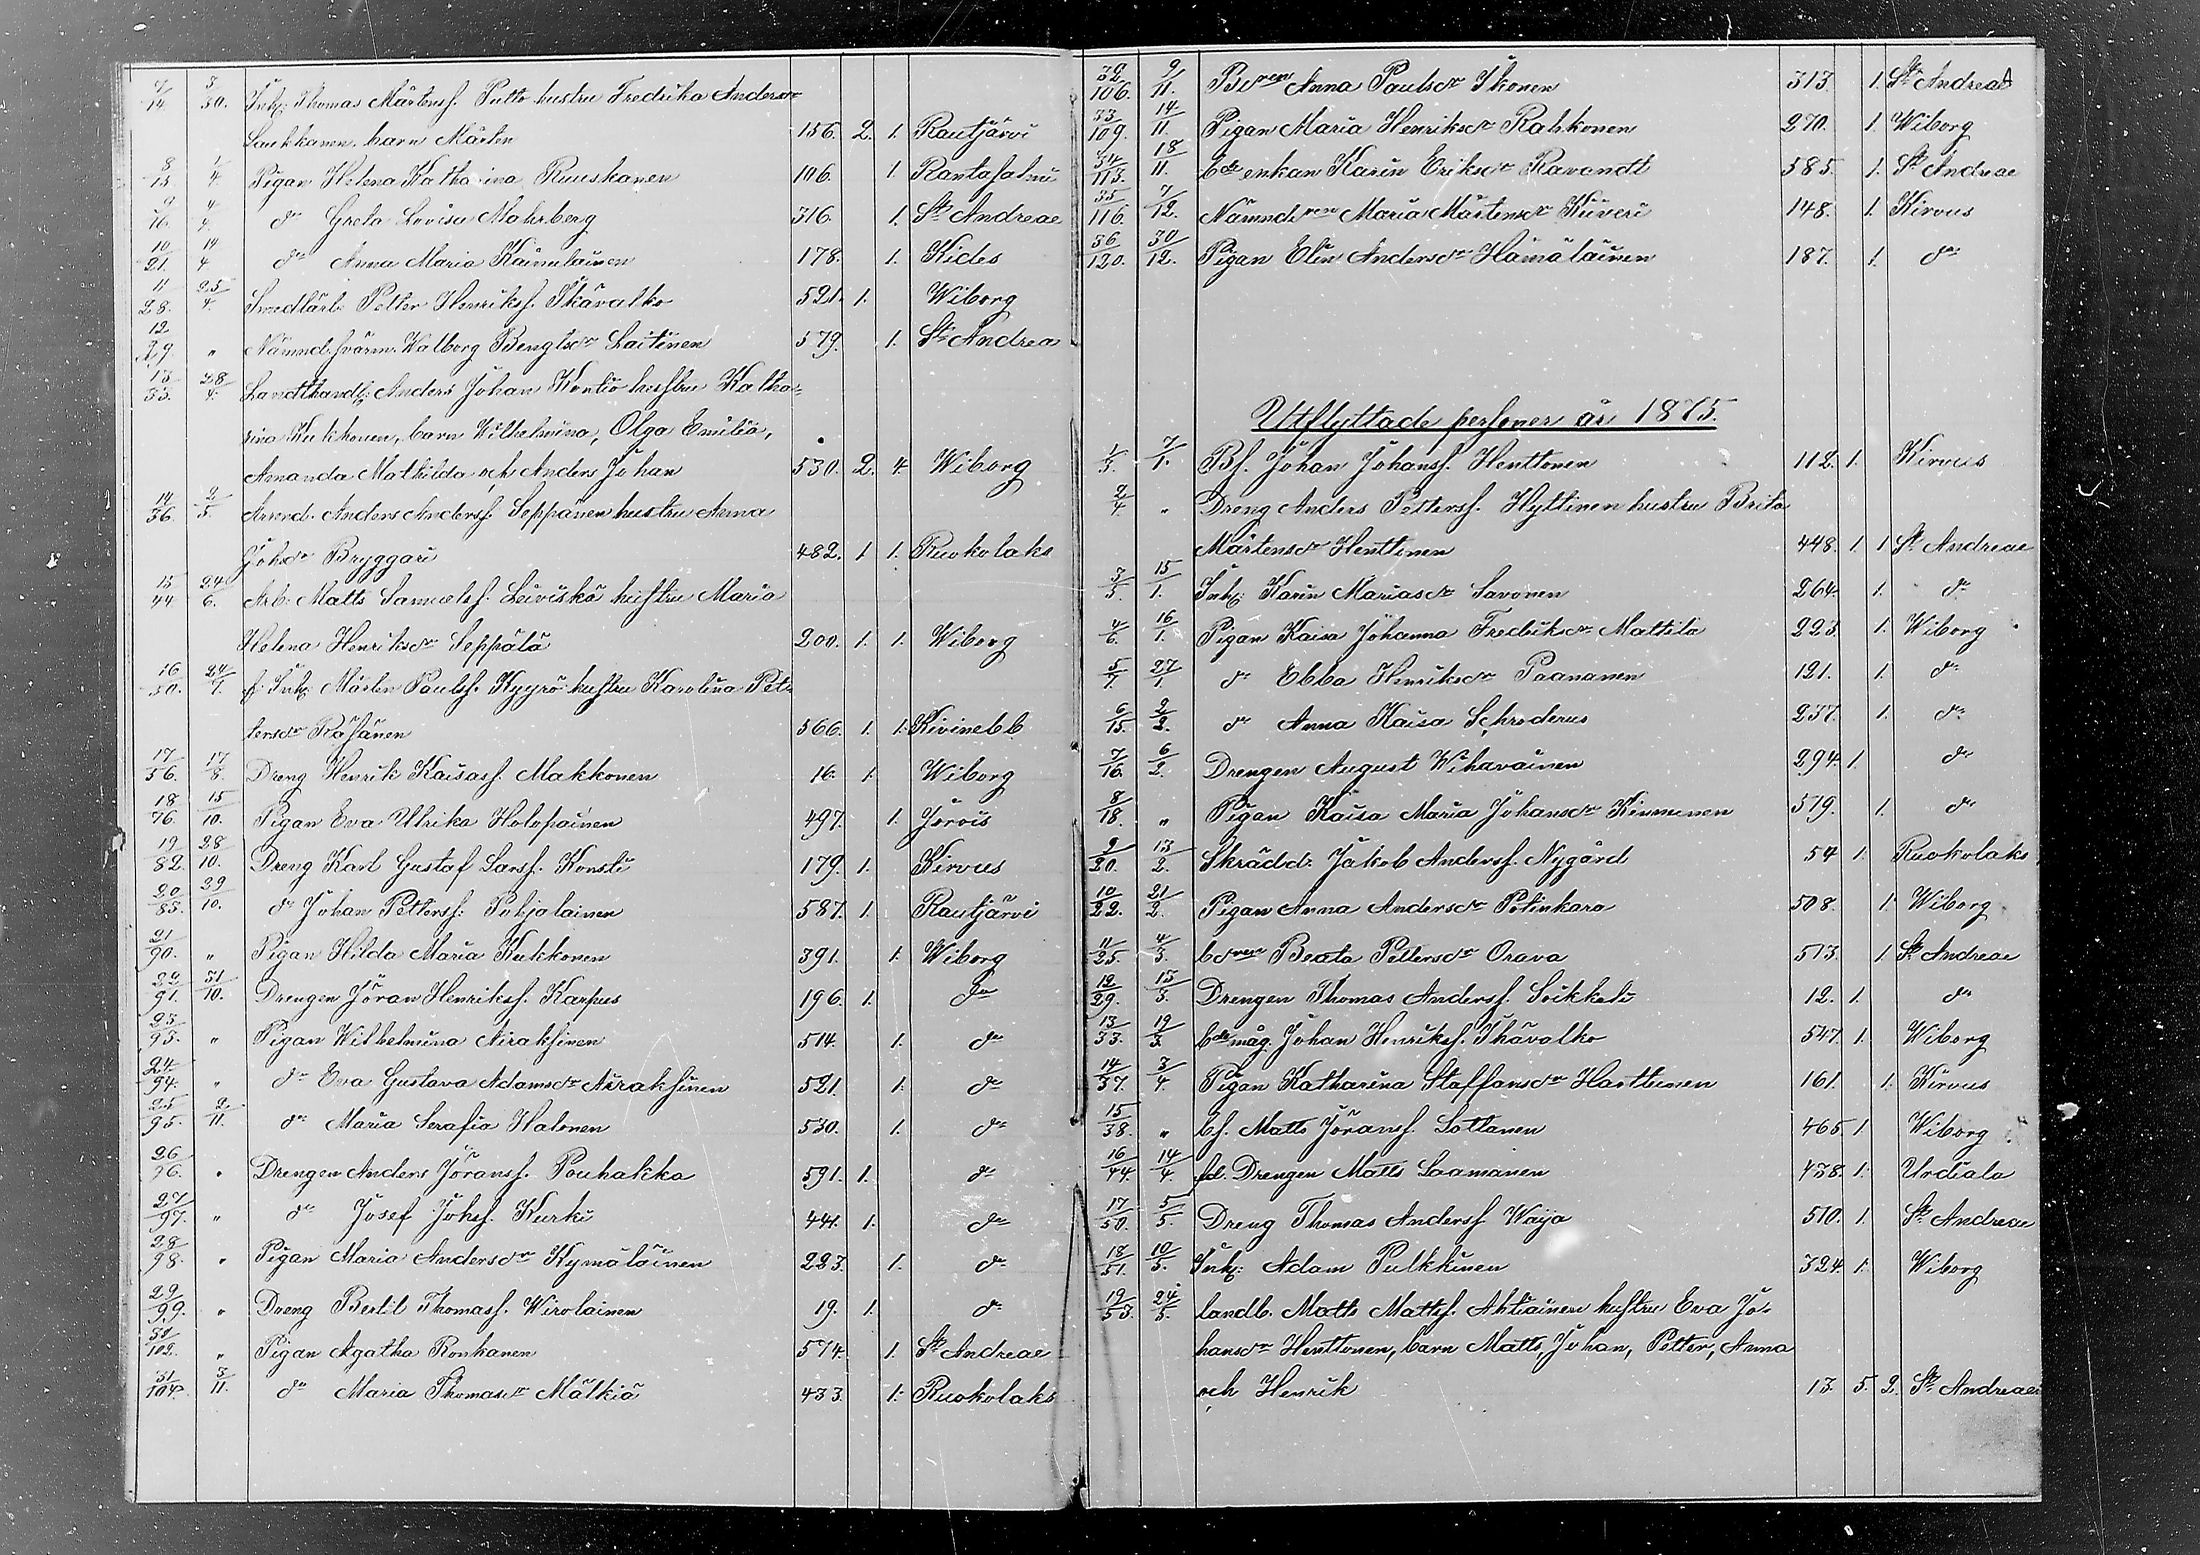 7/14 3/30. Inh: Thomas Mårtenss. Putto hustru Fredrika Andersdr
Laukkanen, barn Mårten 156. 2. 1. Rautjärvi
8/15 1/4 Pigan Helena Katharina Ruuskanen 106. 1. Rantasalmi
9/16. 4/4. do Greta Lovisa Mohrberg 316. 1. St Andreae
10/21. 14/4 do Anna Maria Käinulainen 178. 1. Kides
11/28. 25/4. Smedlärl. Petter Henrikss. Ikävalko 521. 1. Wiborg
12/29. " Nämnd. svärm. Walborg Bengtsdr Laitinen 579. 1. St Andrea
13/33. 28/4. Landthandl: Anders Johan Kontio hustru Katha=
rina Kukkonen, barn Wilhelmina, Olga Emilia,
Amanda Mathilda och Anders Johan 530. 2. 4. Wiborg
14/36. 2/5. Arrend. Anders Anderss. Seppänen hustru Anna
Johsdr Bryggari 482. 1 1. Ruokolaks
15/44 24/6. Arb: Matts Samuelss. Leiviskä hustru Maria
Helena Henriksdr Seppälä 200. 1. 1. Wiborg
16/50. 24/7. f. Inh: Mårten Paulss. Kyyrö hustru Karolina Pet-
tersdr Räsänen 566. 1. 1. Kivinebb
17/56. 17/8. Dreng Henrik Kaisass. Makkonen 16. 1. Wiborg
18/76. 15/10. Pigan Eva Ulrika Holopainen 497. 1. Jorois
19/82. 28/10. Dreng Karl Gustaf Larss. Konsti 179. 1. Kirvus
20/85. 29/10. do Johan Petterss. Pohjalainen 587. 1. Rautjärvi
21/90. " Pigan Hilda Maria Kukkonen 391. 1. Wiborg
22/91. 31/10. Drengen Jöran Henrikss. Karpus 196. 1. do
23/93. " Pigan Wilhelmina Airaksinen 514. 1. do
24/94. " do Eva Gustava Adamsdr Airaksinen 521 1. do
25/95. 2/11. do Maria Serafia Halonen 530. 1. do
26/96. " Drengen Anders Jöranss. Pouhakka 591. 1. do
27/97. " do Josef Johss. Kurki 441. 1. do
28/98. " Pigan Maria Andersdr Kymäläinen 223. 1. do
29/99. " Dreng Bertil Thomass. Wirolainen 19. 1. do
30/102. " Pigan Agatha Ronkanen 574. 1. St Andreae
31/104. 3/11. do Maria Thomasdr Mälkiä 433. 1. Ruokolaks
32/106. 9/11. Bdren Anna Paulsdr Ikonen 313. 1. St Andreae
33/109. 14/11. Pigan Maria Henriksdr Rahkonen 270. 1. Wiborg
34/113. 18/11. bde enkan Karin Eriksdr Ravandt 585. 1. St Andreae
35/116. 7/12. Nämndren Maria Mårtensdr Kiiveri 148. 1. Kirvus
36/120. 30/12. Pigan Elin Andersdr Hämäläinen 187. 1. do
Utflyttade personer år 1875.
1/3. 7/1. Bs. Johan Johanss. Henttonen 112. 1. Kirvus
2/4 " Dreng Anders Petterss. Hyttinen hustru Brita
Mårtensdr Henttinen 448. 1 1 St Andreae
3/5. 15/1. Inh: Karin Mariasdr Savonen 264. 1. do
4/6. 16/1. Pigan Kaisa Johanna Fredriksdr Mattila 223. 1. Wiborg
5/7. 27/1. do Ebba Henriksdr Paananen 121. 1. do
6/15. 2/2. do Anna Kaisa Schroderus 237. 1. do
7/16. 6/2. Drengen August Wihavainen 294. 1. do
8/18. " Pigan Kaisa Maria Johansdr Kinnunen 519. 1. do
9/20. 13/2. Skrädd: Jakob Anderss. Nygård 54 1. Ruokolaks
10/22. 21/2. Pigan Anna Andersdr Potinkara 508. 1. Wiborg
11/25. 4/3. bdren Beata Pettersdr Orava 513. 1 St Andreae
12/29. 13/3. Drengen Thomas Anderss. Soikkeli 12. 1. do
13/33. 19/3. bde måg. Johan Henrikss. Ikävalko 547. 1. Wiborg
14/37. 3/4. Pigan Katharina Staffansdr Harttunen 161. 1. Kirvus
15/38. " bs. Matts Jöranss. Sottanen 465. 1 Wiborg
16/44. 14/4. fd. Drengen Matts Laamanen 438. 1. Urdiala
17/50. 5/5. Dreng Thomas Anderss Waija 510. 1. St Andreae
18/51. 10/5. Inh: Adam Pulkkinen 324. 1. Wiborg
19/53. 24/5. landb. Matts Mattss. Ahtiainen hustru Eva Jo-
hansdr Henttonen, barn Matts, Johan, Petter, Anna
och Henrik 13. 5. 2. St Andreae